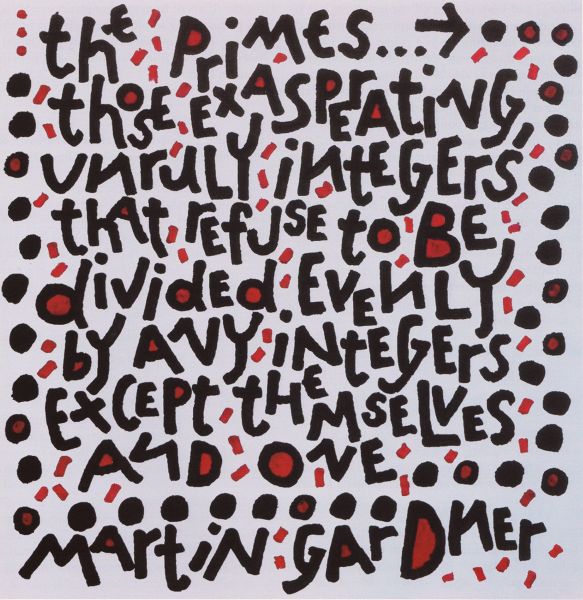 the PriMES...→
thosE ExASpErATiNG,
unruLY intEGErs
thAt rEfUSE to BE
divided EvEnLY
by ANY iNtEGErs
ExCEPt thEMsELVES
AnD ONE.
MArtiN GArDnEr